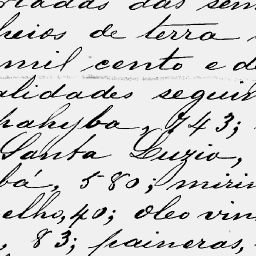 das sem
heios de terra
mil cento e d
alidades seguin
pahyba, 743;
Santa Luzia,
bá, 580; mirim
elho, 40; oleo vin
, 83; paineras,